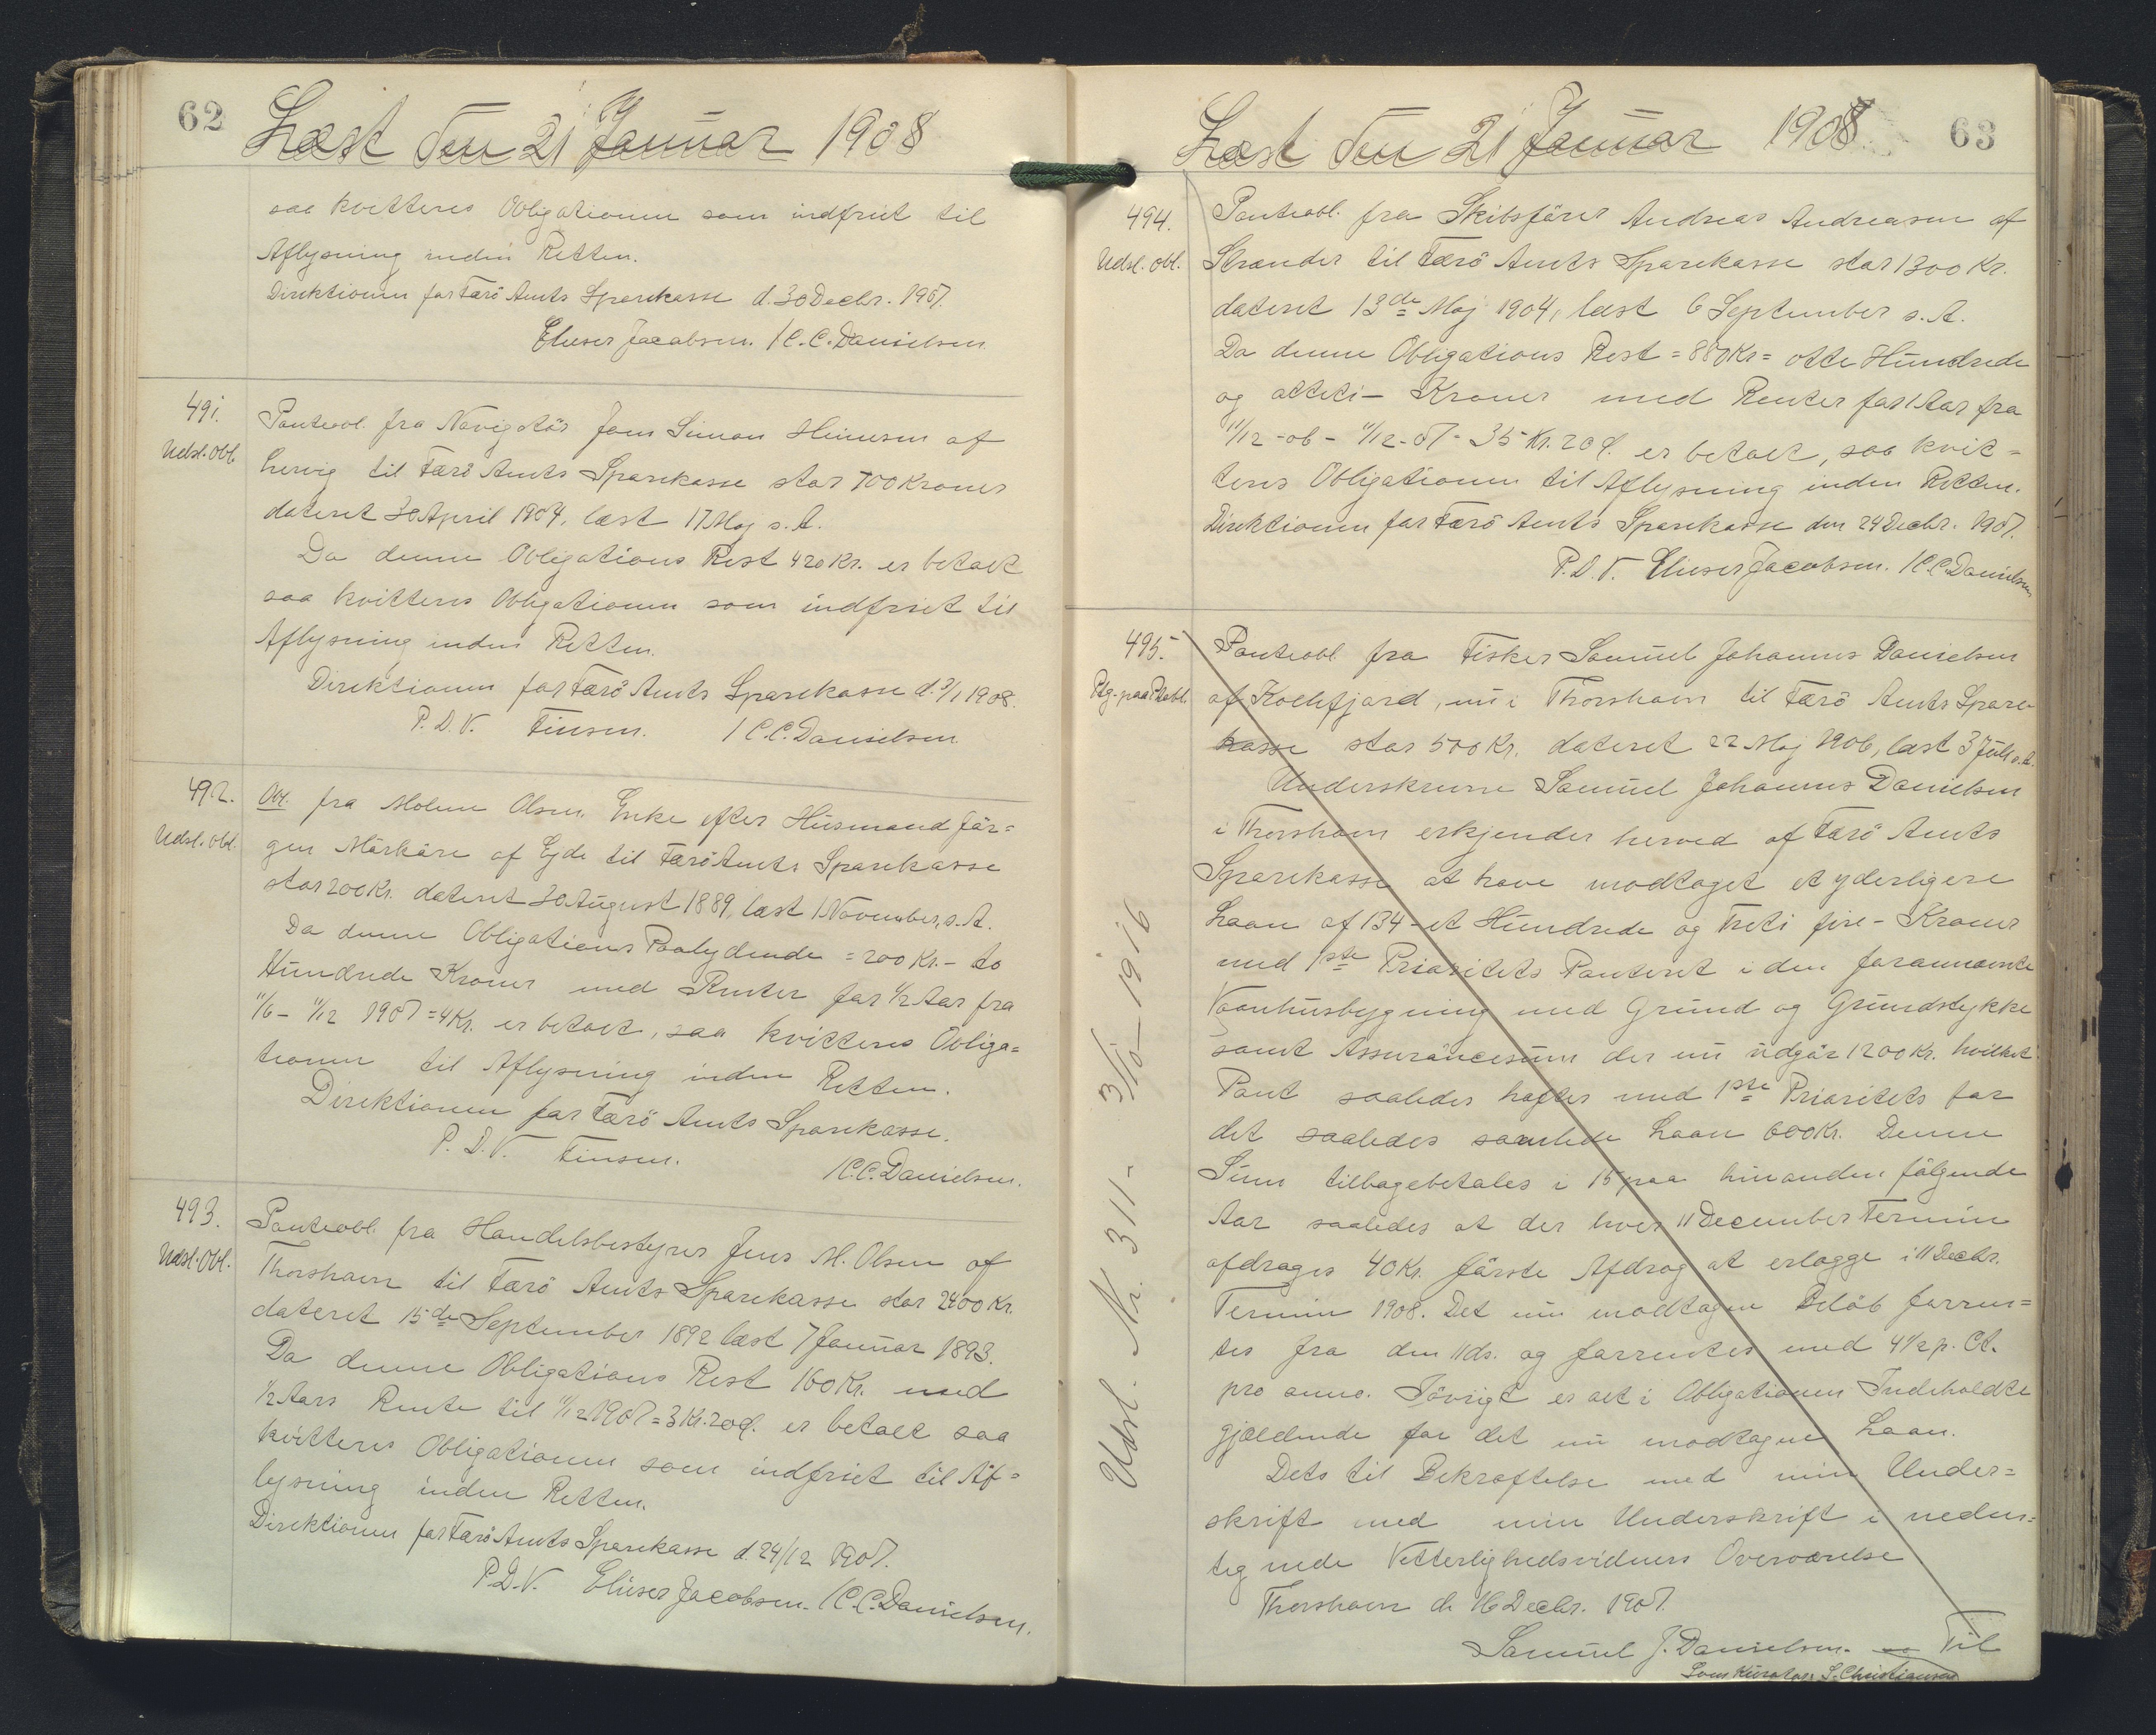 62
Læst den 21 Januar 1908
saa kvitteres Obligationen som indfriet til
Aflysning inden Retten.
Direktionen for Færö Amts Sparekasse d. 30 Decbr. 1907.
Elieser Jacobsen. / C.C. Danielsen
491.
Udsl. Obl.
Panteobl. fra Navigatör Joen Simon Heinesen af
Lervig til Færö Amts Sparekasse stor 700 Kroner
dateret 30 April 1904, læst 17 Maj s. A.
Da denne Obligations Rest 420 Kr. er betalt
saa kvitteres Obligationen som indfriet til
Aflysning inden Retten.
Direktionen for Færö Amts Sparekasse d. 7/1 1908.
P.D.V. Finsen. / C.C. Danielsen
492.
Udsl. Obl.
Obl. fra Malene Olsen, Enke efter Husmand Jör=
gen Mörköre af Ejde til Færö Amts Sparekasse
stor 200 Kr. dateret 30 August 1889, læst 1 November, s. A.
Da denne Obligations Paalydende = 200 Kr. - to
Hundrede Kroner med Renter for 1/2 Aar fra
11/6 - 11/12 1907 = 4 Kr. er betalt, saa kvitteres Obliga=
tionen til Aflysning inden Retten.
Direktionen for Færö Amts Sparekasse.
P.D.V. Finsen. / C.C. Danielsen.
493.
Udsl. Obl.
Panteobl. fra Handelsbestyrer Jens M. Olsen af
Thorshavn til Færö Amts Sparekasse stor 2400 Kr.
dateret 15de September 1892 læst 7 Januar 1893.
Da denne Obligations Rest 160 Kr. med
1/2 Aars Rente til 11/12 1907 = 3 Kr. 20 Ø. er betalt saa
kvitteres Obligationen som indfriet til Af=
lysning inden Retten.
Direktionen for Færö Amts Sparekasse d. 24/12 1907.
P.D.V. Elieser Jacobsen. / C.C. Danielsen.
63
Læst den 21 Januar 1908
494.
Udsl. Obl.
Panteobl. fra Skibsförer Andreas Andreasen af
Strænder til Færö Amts Sparekasse stor 1300 Kr.
dateret 13de Maj 1904, læst 6 September s. A.
Da denne Obligations Rest = 880 Kr = otte Hundrede
og otteti - Kroner med Renter for 1 Aar fra
11/12 - 06 - 11/12 - 07 - 35 Kr. 20 Ø. er betalt, saa kvit=
teres Obligationen til Aflysning inden Retten.
Direktionen for Færö Amts Sparekasse den 24 Decbr. 1907.
P.D.V. Elieser Jacobsen. / C.C. Danielsen
495.
Ptg. paa Ptobl.
Panteobl. fra Fisker Samuel Johannes Danielsen
af Kolefjord, nu i Thorshavn til Færö Amts Spare-
kasse stor 500 Kr. dateret 22 Maj 1906, læst 3 Juli s. A.
Underskrevne Samuel Johannes Danielsen
i Thorshavn erkjender herved af Færö Amts
Sparekasse at have modtaget et yderligere
Laan af 134 - et Hundrede og treti fire - Kroner
med 1ste Prioritets Panteret i den forannævnte
Vaanhusbygning med Grund og Grundstykke
samt Assurancesum der nu udgör 1200 Kr. hvilket
Pant saaledes hæfter med 1ste Prioritets for
det saaledes samlede Laan 600 Kr. Denne
Sum tilbagebetales i 15 paa hinanden fölgende
Aar saaledes at der hver 11 December Termin
afdrages 40 Kr. förste Afdrag at erlægge i 11 Decbr.
Termin 1908. Det nu modtagne Belöb forren=
tes fra den 11 ds. og forrentes med 4 1/2 p. Ct.
pro anno. Iövrigt er alt i Obligationen Indeholdte
gjældende for det nu modtagne Laan.
Dets til Bekræftelse med min Under=
skrift med min Underskrift i neden=
tegnede Vetterlighedsvidners Overværelse
Thorshavn d. 16 Decbr. 1907.
Samuel J. Danielsen. Til
Som Kurator: S. Christiansen
Udsl. Nr. 311 - 3/10 - 1916